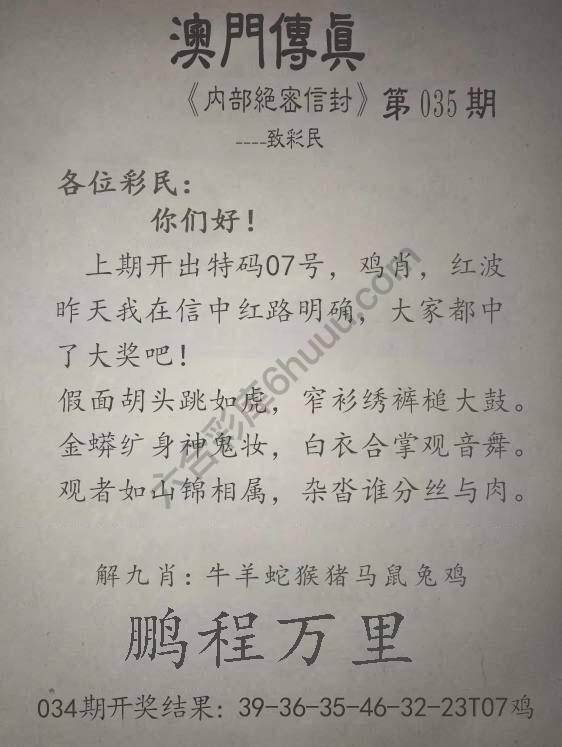 澳門傳真
《内部絕密信封》第035期
----致彩民
各位彩民：
你们好！
上期开出特码07号，鸡肖，红波
昨天我在信中红路明确，大家都中
了大奖吧！
假面胡头跳如虎，窄衫绣裤槌大鼓。
金蟒纩身神鬼妆，白衣合掌观音舞。
观者如山锦相属，杂沓谁分丝与肉。
六合彩库6huuu.com
解九肖：牛羊蛇猴猪马鼠兔鸡
鹏程万里
034期开奖结果：39-36-35-46-32-23T07鸡